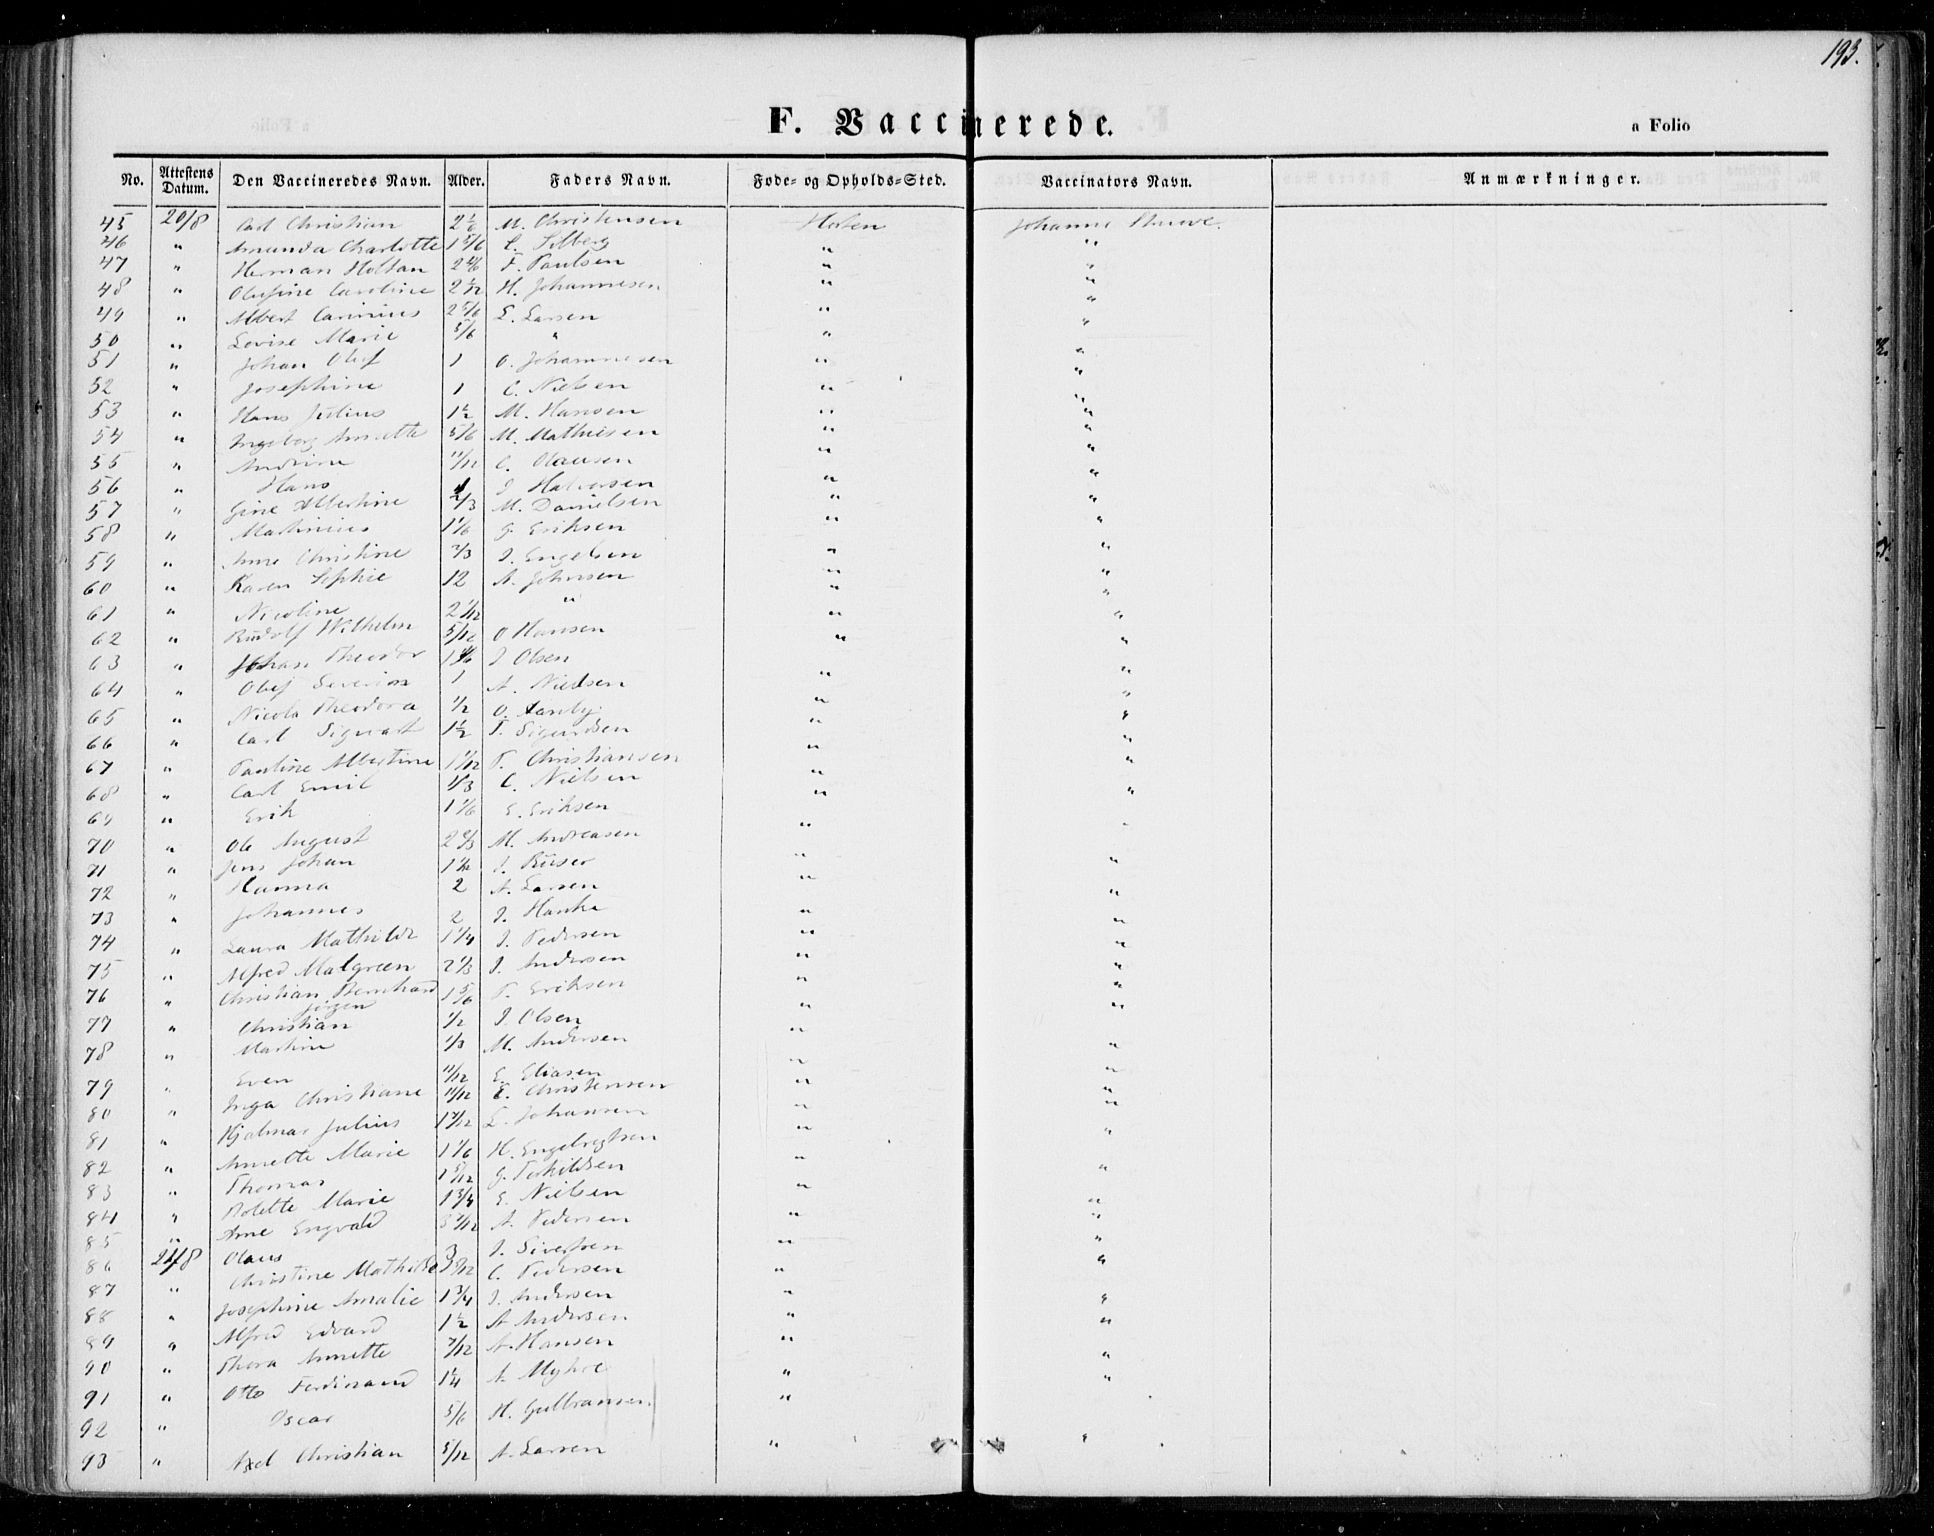 193.
F. Vaccinerede.
a Folio
No. Attestens Datum. Den Vaccineredes Navn. Alder. Faders Navn. Føde- og Opholds-Sted. Vaccinators Navn. Anmærkninger.
45 20/8 Carl Christian M. Christensen Holen Johanne
46 " Amanda Charlotte 1 5/6 " "
47 " Herman Holtan F. Paulsen " "
48 " Olufine Caroline H. Johannesen " "
49 " Albert Carinius 2 5/6 L. Larsen " "
50 " Lovise Marie 5/6 " " "
51 " Johan Oluf 1 O. Johannesen " "
52 " Josephine 1 C. Nielsen " "
53 " Hans Julius 1 1/2 M. Hansen " "
54 " Ingeborg Annette 5/6 M. Mathisen " "
55 " Andrine 11/12 C. Clausen " "
56 " Hans J. Halvorsen " "
57 " Gine Albertine 2/3 M. Danielsen " "
58 " Martinius 1 1/6 G. Eriksen " "
59 " Anne Christine 2/3 J. Engelsen " "
60 " Karen Sophie 12 A. Johnsen " "
61 " Nicoline 2 1/12 " " "
62 " Rudolf Wilhelm 5/12 O Hansen " "
63 " Johan Theodor J Olsen " "
64 " Oluf Severin 1 A. Nielsen " "
65 " Nicola Theodora 1/2 O. " "
66 " Carl Sigvart 1 1/2 T. Sigurdsen " "
67 " Pauline Albertine P. Christiansen " "
68 " Carl Emil 1/3 C. Nielsen " "
69 " Erik 1 1/6 E. Eriksen " "
70 " Ole August M. Andreasen " "
71 " Jens Johan J. " "
72 " Hanna 2 A. Larsen " "
73 " Johannes 2 J. Hanke " "
74 " Laura Mathilde 1 1/4 J. Pedersen " "
75 " Alfred Malgreen 2 1/3 J. Andersen " "
76 " Christian Bernhard 1 5/6 P. Eriksen " "
Jørgen
77 " Christian 1/2 J. Olsen " "
78 " Martine 1/3 M. Andersen " "
79 " Even 11/12 E. Eliasen " "
80 " Inga Christiane 11/12 E. Christensen " "
81 " Hjalmar Julius L. Johansen " "
82 " Annette Marie 1 1/6 H. Engebregtsen " "
83 " Thomas 1 5/12 G. Terkildsen " "
84 " Bolette Marie 1 3/4 E. Nielsen " "
85 " Arne Engvald A. Pedersen " "
86 21/8 Olaus 3 J. Sivertsen " "
87 " Christine Mathilde C. Pedersen " "
88 " Josephine Amalie 1 3/4 J. Andersen " "
89 " Alfred Edvard 1 1/2 A Andersen " "
90 " Thora Annette 7/12 A. Hansen " "
91 " Otto Ferdinand 1 1/4 A. Myhre " "
92 " Oscar 5/6 H. Gulbransen "
93 " Axel Christian 5/12 A. Larsen " "